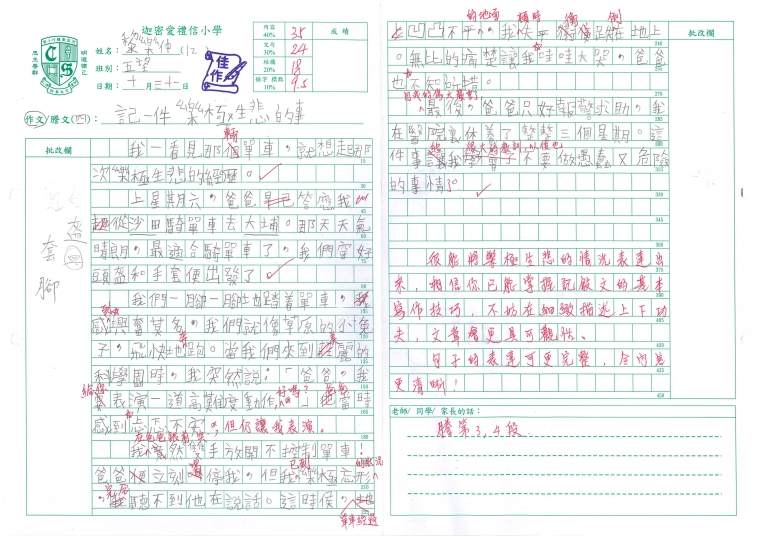 迦密愛禮信小學
明道律己
忠主善群
姓名：黎樂仲（12）
班別：五望
日期：十一月三十一日
佳作
內容 40% 35
文句 30% 24
組織 20% 18
錯字 標點 10% 9.5
成績
作文/謄文(四)：記一件樂極生悲的事
批改欄
我一看見那個單車，就想起那
輛
次樂極生悲的經歷。
上星期六，爸爸早已答應我
從沙田騎單車去大埔。那天天氣
晴朗，最適合騎單車了，我們穿好
頭盔和手套便出發了。
我們一腳一腳地踏着單車，我
感興奮莫名，我們就像草原的小兔
子，飛快地跑。當我們來到美麗的
科學園時，我突然說：「爸爸，我
給你
好嗎？
要表演一道高難度動作。」爸爸當時
感到忐忑不安，但仍讓我表演。
我竟然雙手放開不控制單車！
爸爸便立刻喝停我，但我已到樂極忘形的狀況
，完全聽不到他在說話。這時候，
單車經過
盔
套
腳
的地面 頓時 衝 倒
凹凸不平，我失平衡，摔跤在地上
。無比的痛楚讓我哇哇大哭，爸爸
也不知所措。
最後，爸爸只好報警求助，我
在醫院裏休養了整整三個星期。這
很大的教訓，以後也
件事讓我學會了不要做愚蠢又危險
的事情。
很能將樂極生悲的情況表達出
來，相信你已能掌握記敍文的基本
寫作技巧，不妨在細緻描述上下功
夫，文章會更具可觀性。
句子的表達可更完整，令內容
更清晰！
批改欄
老師/ 同學/ 家長的話：
謄第3,4段